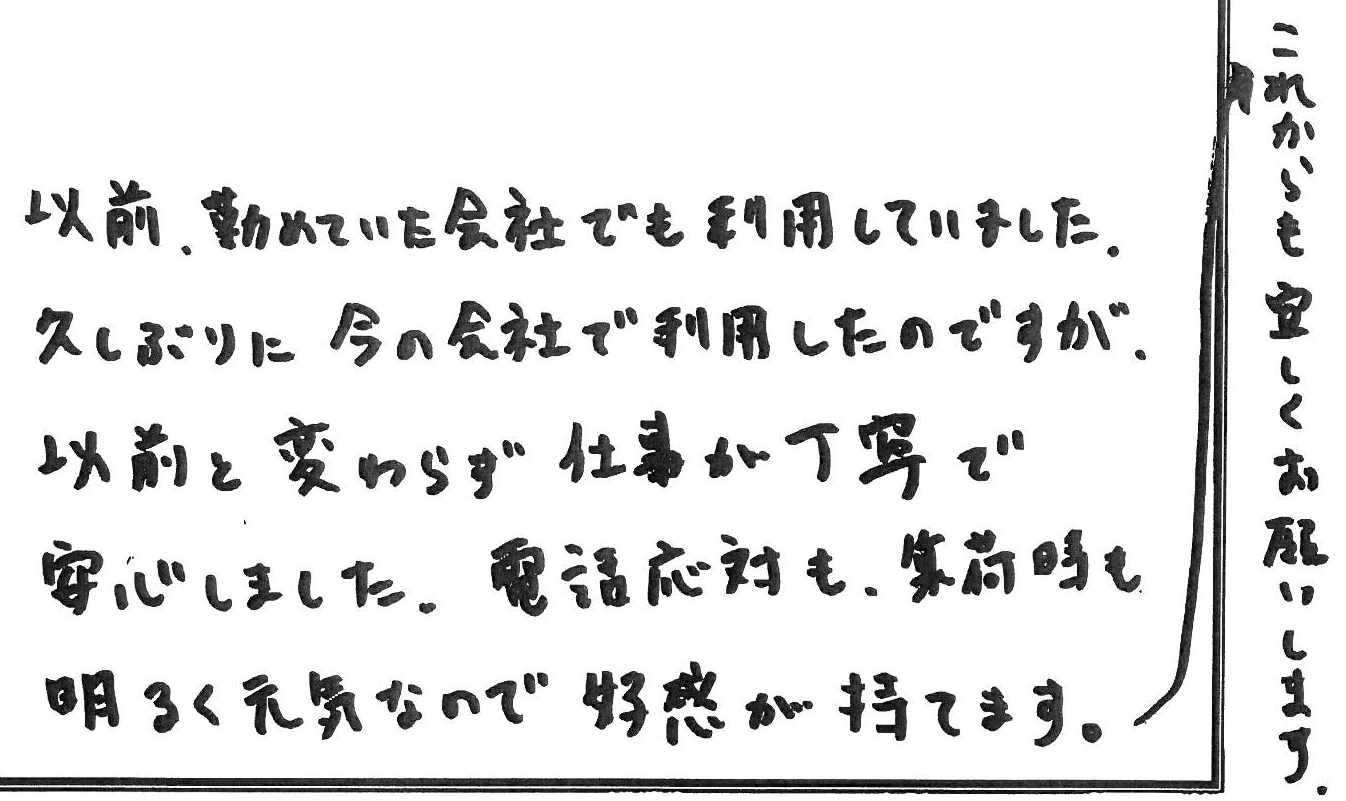 以前、勤めていた会社でも利用していました。
久しぶりに今の会社で利用したのですが、
以前と変わらず仕事が丁寧で
安心しました。電話応対も、集荷時も
明るく元気なので好感が持てます。
これからも宜しくお願いします。